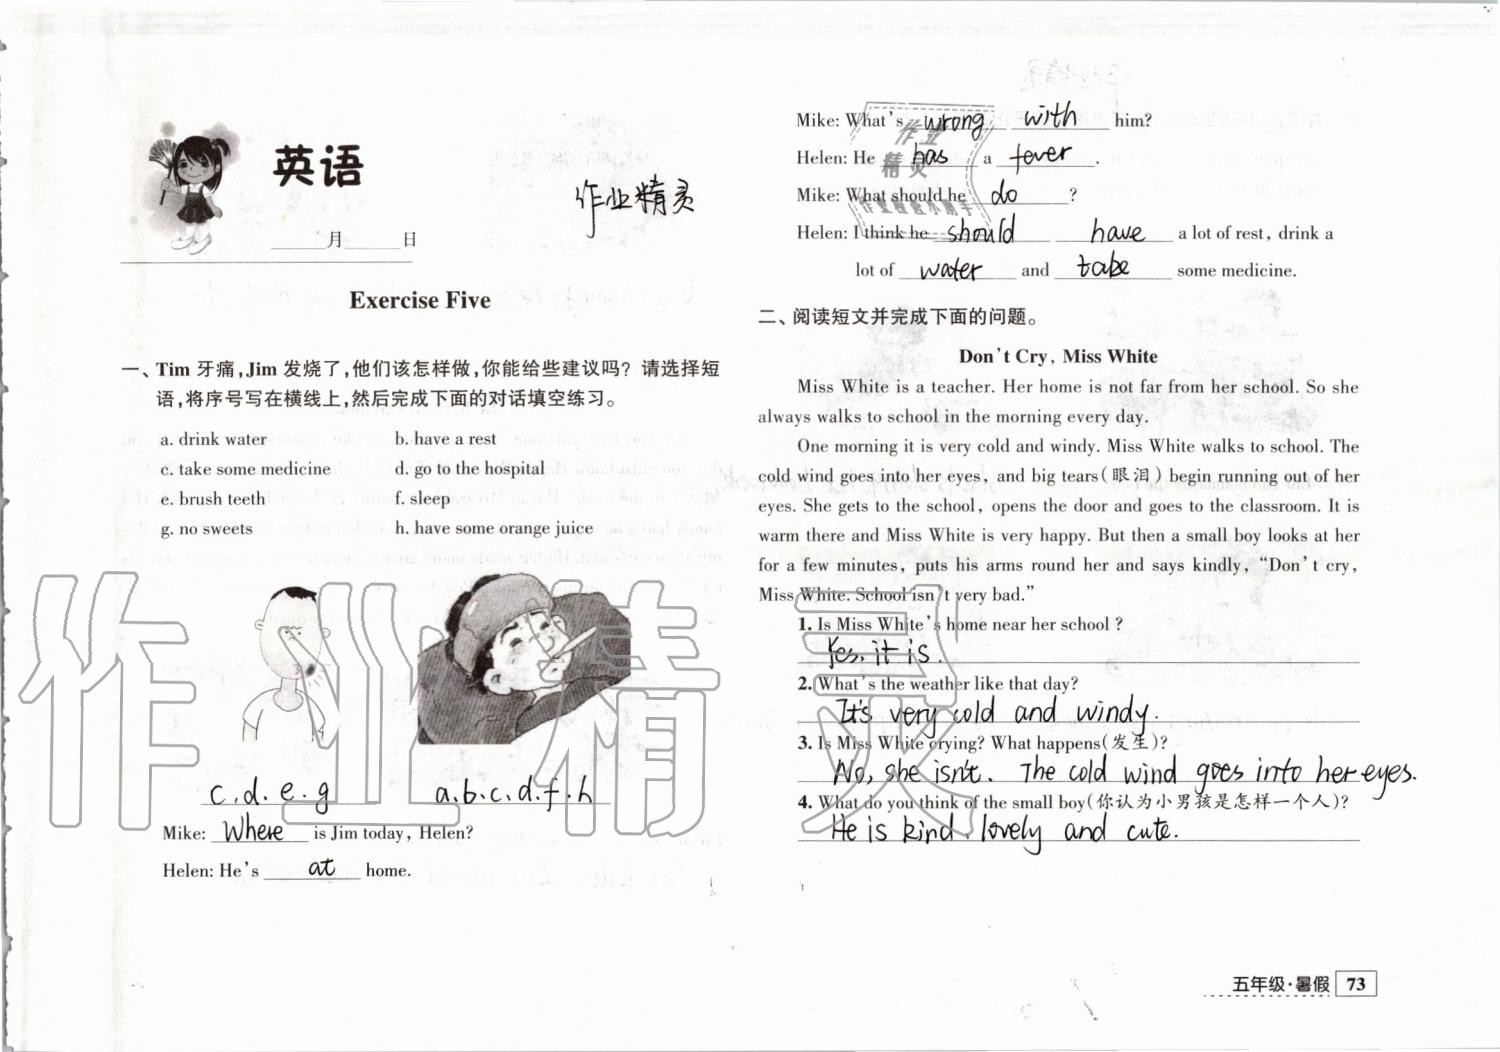 英语
作业精灵
月 日
Exercise Five
一、Tim 牙痛,Jim 发烧了,他们该怎样做,你能给些建议吗？请选择短
语,将序号写在横线上,然后完成下面的对话填空练习。
a. drink water b. have a rest
c. take some medicine d. go to the hospital
e. brush teeth f. sleep
g. no sweets h. have some orange juice
c.d.e.g a.b.c.d.f.h
Mike: Where is Jim today, Helen?
Helen: He's at home.
Mike: What's wrong with him?
Helen: He has a fever.
Mike: What should he do ?
Helen: I think he should have a lot of rest, drink a
lot of water and take some medicine.
二、阅读短文并完成下面的问题。
Don't Cry, Miss White
Miss White is a teacher. Her home is not far from her school. So she
always walks to school in the morning every day.
One morning it is very cold and windy. Miss White walks to school. The
cold wind goes into her eyes, and big tears(眼泪) begin running out of her
eyes. She gets to the school, opens the door and goes to the classroom. It is
warm there and Miss White is very happy. But then a small boy looks at her
for a few minutes, puts his arms round her and says kindly, "Don't cry,
Miss White. School isn't very bad."
1. Is Miss White's home near her school?
Yes, it is.
2. What's the weather like that day?
It's very cold and windy.
3. Is Miss White crying? What happens(发生)?
No, she isn't. The cold wind goes into her eyes.
4. What do you think of the small boy(你认为小男孩是怎样一个人)?
He is kind, lovely and cute.
五年级·暑假 73
作业精灵
作业精灵